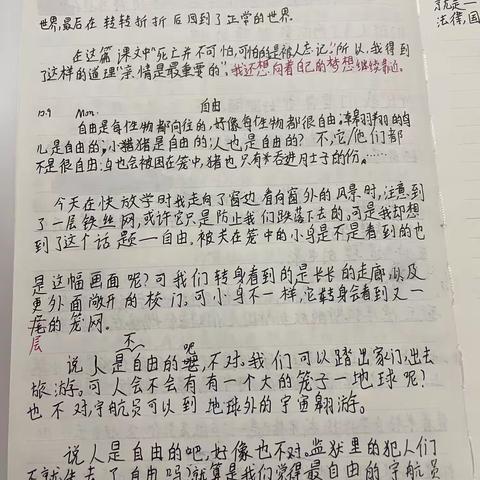 世界,最后在转转折折后回到了正常的世界.
就是一
法律,国
在这篇课文中"死亡并不可怕,可怕的是被人忘记."所以,我得到
了这样的道理"亲情是最重要的".我还想向着自己的梦想继续靠近.
12.9 Mon. 自由
自由是每任物都向往的,好像每任物都很自由;翱翔的鸟
儿是自由的;小猪是自由的;人也是自由的?不,它/他们都
不是很自由:鸟也会被困在笼中,猪也只有吞进月土子的份,……
今天在快放学时我走向了窗边看向窗外的风景时,注意到
了一层铁丝网,或许它只是防止我们跌落下去的.可是我却想
到了这个话题——自由.被关在笼中的小鸟是不是看到的也
是这幅画面呢?可我们转身看到的是长长的走廊以及
更外面敞开的校门。可小鸟不一样,它转身会看到又一
层的笼网.
层
说人是不自由的吧,不对.我们可以踏出家门,出去
旅游。可人会不会有有一个大的笼子—地球呢?
也不对,宇航员可以到地球外的宇宙翱游。
说人是自由的吧,好像也不对.监狱里的犯人们
不就失去了自由吗?就算是我们觉得最自由的宇航员